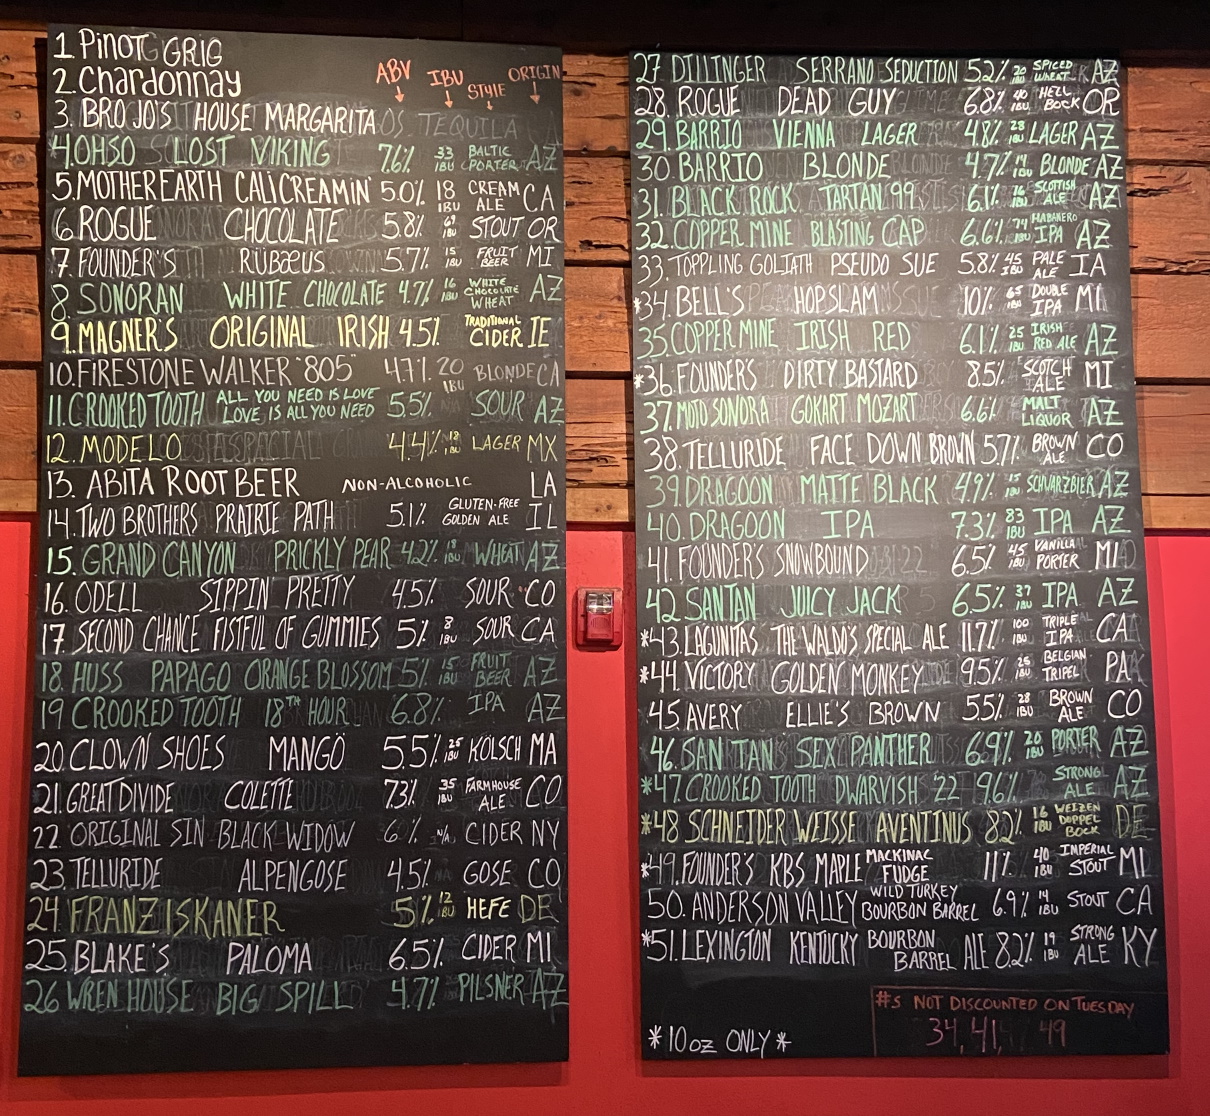 1. Pinot Grig
2. Chardonnay
ABV IBU STYLE ORIGIN
3. BRO JO'S HOUSE MARGARITA
*4. OHSO LOST VIKING 7.6% 33 IBU BALTIC PORTER AZ
5. MOTHER EARTH CALI CREAMIN' 5.0% 18 IBU CREAM ALE CA
6. ROGUE CHOCOLATE 5.8% 69 IBU STOUT OR
7. FOUNDER'S RÜBÆUS 5.7% 15 IBU FRUIT BEER MI
8. SONORAN WHITE CHOCOLATE 4.7% 16 IBU WHITE CHOCOLATE WHEAT AZ
9. MAGNER'S ORIGINAL IRISH 4.5% TRADITIONAL CIDER IE
10. FIRESTONE WALKER "805" 4.7% 20 IBU BLONDE CA
11. CROOKED TOOTH ALL YOU NEED IS LOVE LOVE IS ALL YOU NEED 5.5% SOUR AZ
12. MODELO 4.4% 12 IBU LAGER MX
13. ABITA ROOT BEER NON-ALCOHOLIC LA
14. TWO BROTHERS PRAIRIE PATH 5.1% GLUTEN-FREE GOLDEN ALE IL
15. GRAND CANYON PRICKLY PEAR 4.2% 18 IBU WHEAT AZ
16. ODELL SIPPIN PRETTY 4.5% SOUR CO
17. SECOND CHANCE FISTFUL OF GUMMIES 5% 8 IBU SOUR CA
18. HUSS PAPAGO ORANGE BLOSSOM 5% 15 IBU FRUIT BEER AZ
19 CROOKED TOOTH 18TH HOUR 6.8% IPA AZ
20. CLOWN SHOES MANGÖ 5.5% 25 IBU KÖLSCH MA
21. GREAT DIVIDE COLETTE 7.3% 35 IBU FARMHOUSE ALE CO
22. ORIGINAL SIN BLACK WIDOW 6% N/A CIDER NY
23. TELLURIDE ALPENGOSE 4.5% GOSE CO
24. FRANZISKANER 5% 12 IBU HEFE DE
25. BLAKE'S PALOMA 6.5% CIDER MI
26 WREN HOUSE BIG SPILL 4.7% PILSNER AZ
27. DILLINGER SERRANO SEDUCTION 5.2% 20 IBU SPICED WHEAT AZ
28. ROGUE DEAD GUY 6.8% 40 IBU HELL BOCK OR
29. BARRIO VIENNA LAGER 4.8% 28 IBU LAGER AZ
30. BARRIO BLONDE 4.7% 14 IBU BLONDE AZ
31. BLACK ROCK TARTAN 99 6.1% 16 IBU SCOTTISH ALE AZ
32. COPPER MINE BLASTING CAP 6.6% 74 IBU HABANERO IPA AZ
33. TOPPLING GOLIATH PSEUDO SUE 5.8% 45 IBU PALE ALE IA
*34. BELL'S HOPSLAM 10% 65 IBU DOUBLE IPA MI
35. COPPER MINE IRISH RED 6.1% 25 IBU IRISH RED ALE AZ
*36. FOUNDERS DIRTY BASTARD 8.5% SCOTCH ALE MI
37. MOTO SONORA GOKART MOZART 6.6% MALT LIQUOR AZ
38. TELLURIDE FACE DOWN BROWN 5.7% BROWN ALE CO
39. DRAGOON MATTE BLACK 4.9% 15 IBU SCHWARZBIER AZ
40. DRAGOON IPA 7.3% 83 IBU IPA AZ
41. FOUNDER'S SNOWBOUND 6.5% 45 IBU VANILLA PORTER MI
42. SANTAN JUICY JACK 6.5% 37 IBU IPA AZ
*43. LAGUNITAS THE WALDO'S SPECIAL ALE 11.7% 100 IBU TRIPLE IPA CA
*44. VICTORY GOLDEN MONKEY 9.5% 25 IBU BELGIAN TRIPEL PA
45. AVERY ELLIE'S BROWN 5.5% 28 IBU BROWN ALE CO
46. SAN TAN SEX PANTHER 6.9% 20 IBU PORTER AZ
*47. CROOKED TOOTH DWARVISH '22 9.6% STRONG ALE AZ
*48 SCHNEIDER WEISSE AVENTINUS 8.2% 16 IBU WEIZEN DOPPEL BOCK DE
*49. FOUNDER'S KBS MAPLE MACKINAC FUDGE 11% 40 IBU IMPERIAL STOUT MI
50. ANDERSON VALLEY WILD TURKEY BOURBON BARREL 6.9% 14 IBU STOUT CA
*51. LEXINGTON KENTUCKY BOURBON BARREL ALE 8.2% 19 IBU STRONG ALE KY
#s NOT DISCOUNTED ON TUESDAY
34, 41, 49
*10oz ONLY*